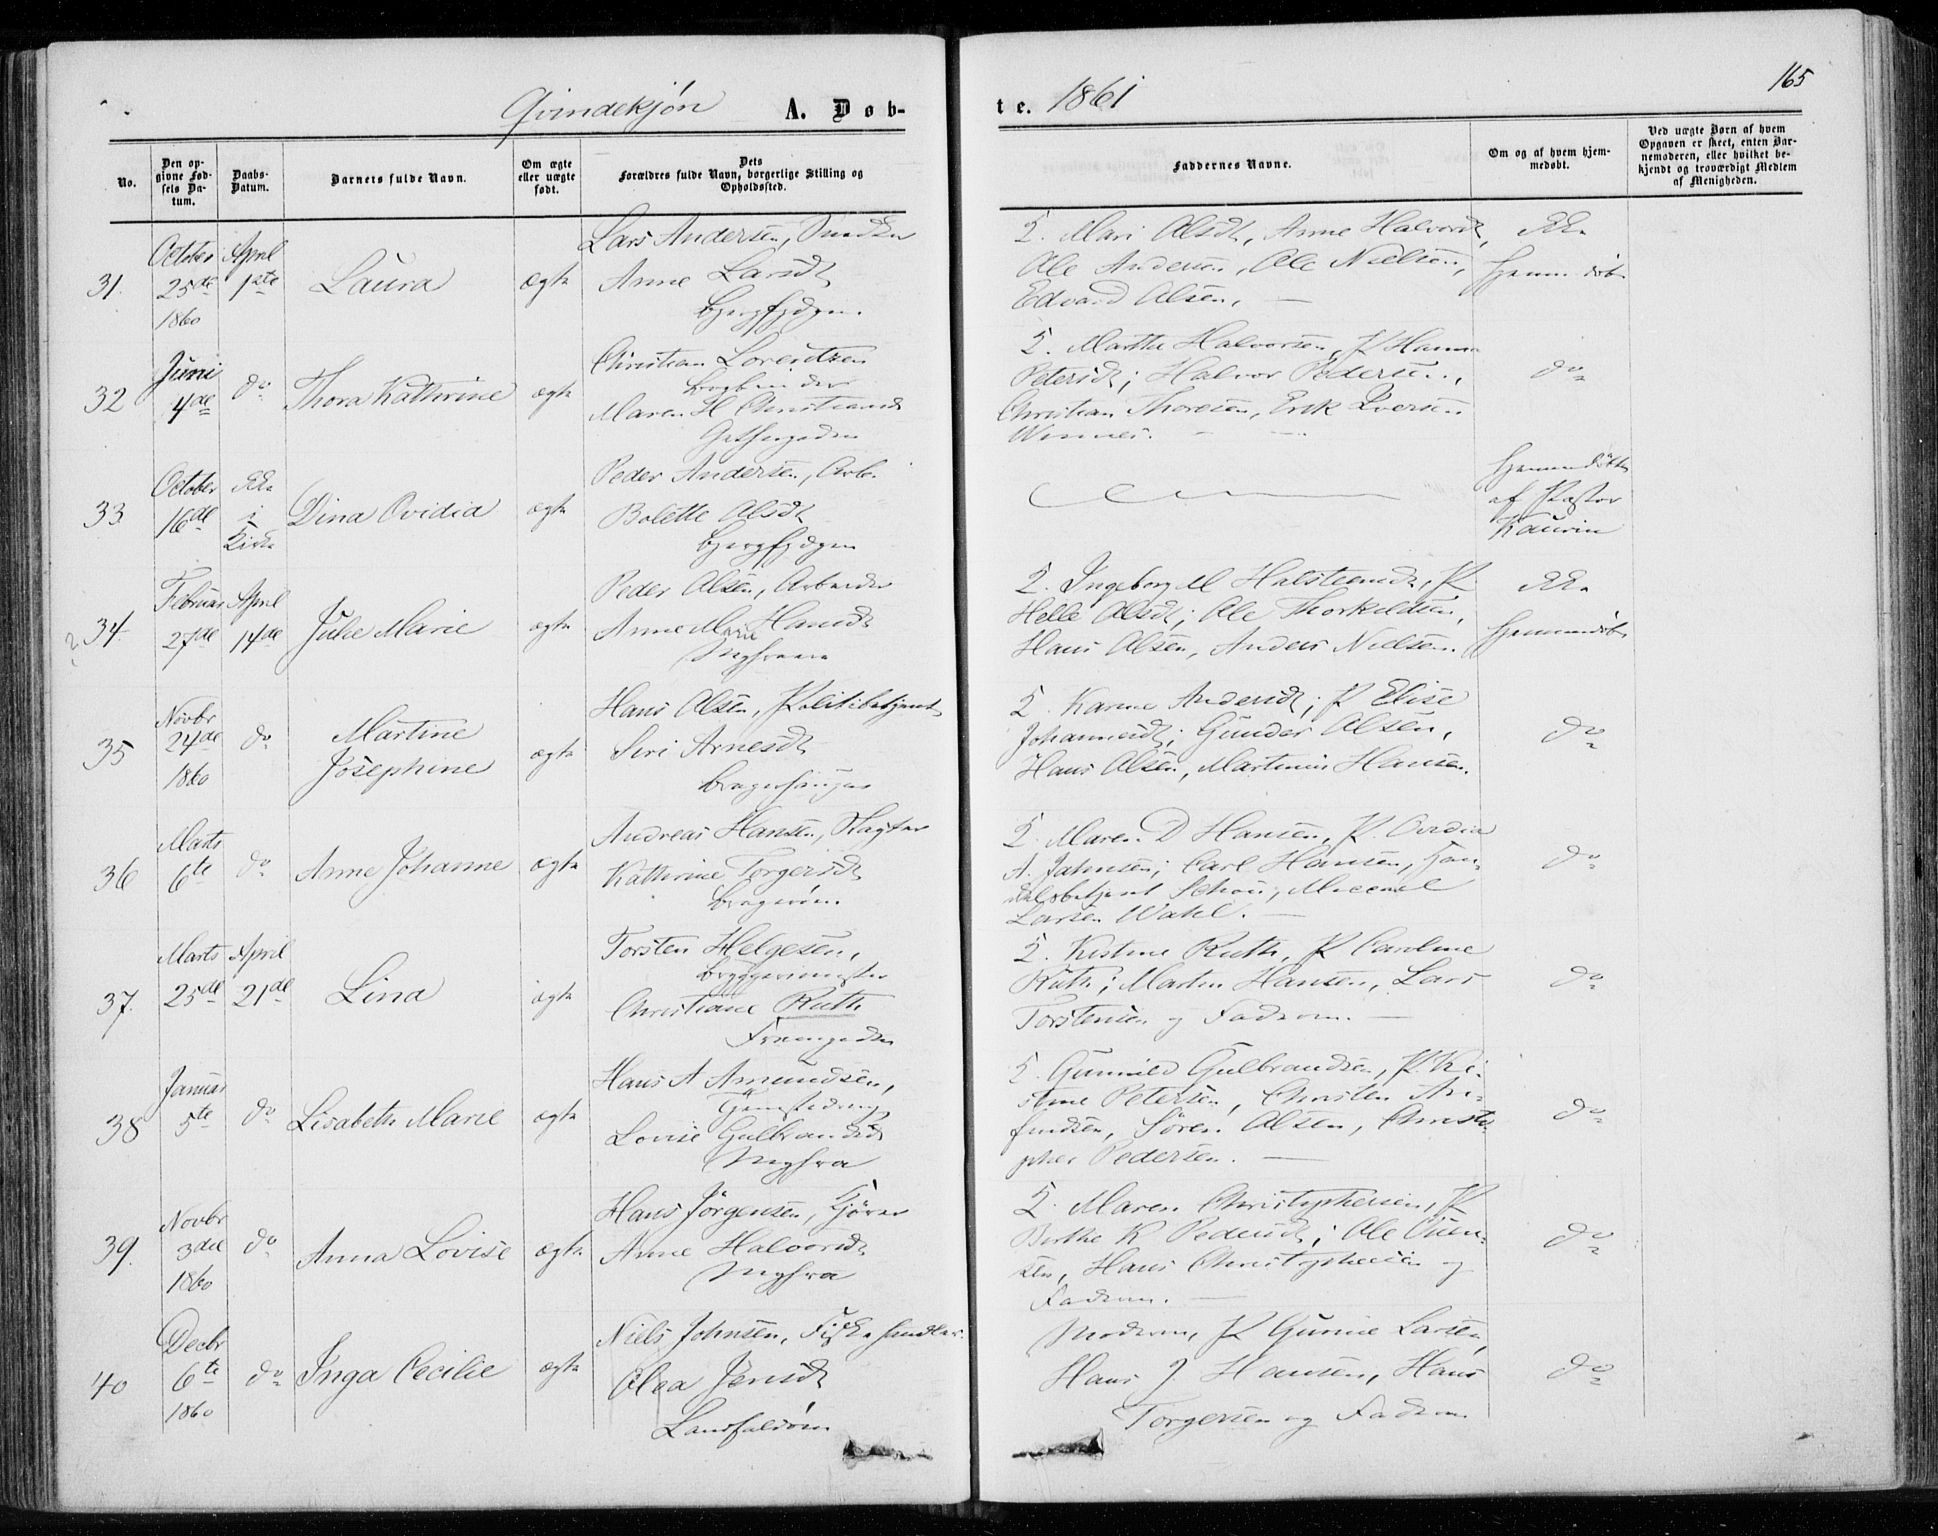 Qvindekjøn A. Døb-
te. 1861
165
No.
Den op-
givne Fød-
sels Da-
tum.
Daabs-
Datum.
Barnets fulde Navn.
Om ægte
eller uægte
født.
Dets
Forældres fulde Navn, borgerlige Stilling og
Opholdssted.
Faddernes Navne.
Om og af hvem hjem-
medøbt.
Ved uægte Børn af hvem
Opgaven er skeet, enten Bar-
nemoderen, eller hvilket be-
kjendt og troværdigt Medlem
af Menigheden.
31.
October
25de
1860
April
1ste
Laura
ægte
Lars Andersen,
Anne Larsdt
Mari Olsdt, Anne Halvorsdt,
Ole Andersen, Ole Nielsen,
Edvard Olsen,
Ikke
hjemmedøbt
32
Juni
4de
do
Thora Kathrine
ægte
Christian Lorentzen
Bogbinder
Maren H Christiansdt
Marthe Halvorsen, P Hanna
Petersdt; Halvor Pedersen,
Christian Thoresen, Erik Iversen
do
33
October
16de
Ikke
i
Kirke
Dina Ovidia
ægte
Peder Andersen, Arb.
Bolette Olsdt
Hjemmedøbt
af Pastor
Kaurin
34.
Februar
27de
April
14de
Julie Marie
ægte
Peder Olsen, Arbeider
Anne Marie Hansdt
Ingeborg M Halsteensdt, P
Helle Olsdt; Ole Thorkildsen,
Hans Olsen, Anders Nielsen.
Ikke
hjemmedøbt
35
Novbr
24de
1860
do
Martine
Josephine
ægte
Hans Olsen, Politibetjent
Siri Arnesdt
Karine Andersdt; P Elise
Johannesdt; Gunder Olsen,
Hans Olsen, Martinius Hansen.
do
36
Marts
6te
do
Anne Johanne
ægte
Andreas Hansen, Slagter
Kathrine Torgersdt
Maren D Hansen, P. Ovidia
A. Jahnsen; Carl Hansen, Han-
delsbetjent Schou,
Larsen Wahl.
do
37.
Marts
25de
April
21de
Lina
ægte
Torsten Helgesen,
Bryggerimester
Christiane Ruth
Kistine Ruth, P Caroline
Ruth; Martin Hansen, Lars
Torstensen og Faderen.
do
38
Januar
5te
do
Lisabeth Marie
ægte
Hans A Amundsen,
Lovise Gulbrandsdt
Gunnild Gulbrandsen, P. Ki-
stine Petersen, Christen An-
findsen, Sören Olsen, Christo-
pher Pedersen.
do
39.
Novbr
3die
1860
do
Anna Lovise
ægte
Hans Jörgensen, Kjører
Anne Halvorsdt
Maren Christophersen, P
Berthe K Pedersdt; Ole Olen-
sen, Hans Christophersen og
Faderen.
do
40
Decbr
6te
1860
do
Inga Cecilie
ægte
Niels Johnsen, Fiskehandler
Olea Jensdt
Landfaldøen
Moderen, P Gunine Larsen,
Hans J. Hansen, Hans
Torgersen og Faderen
do